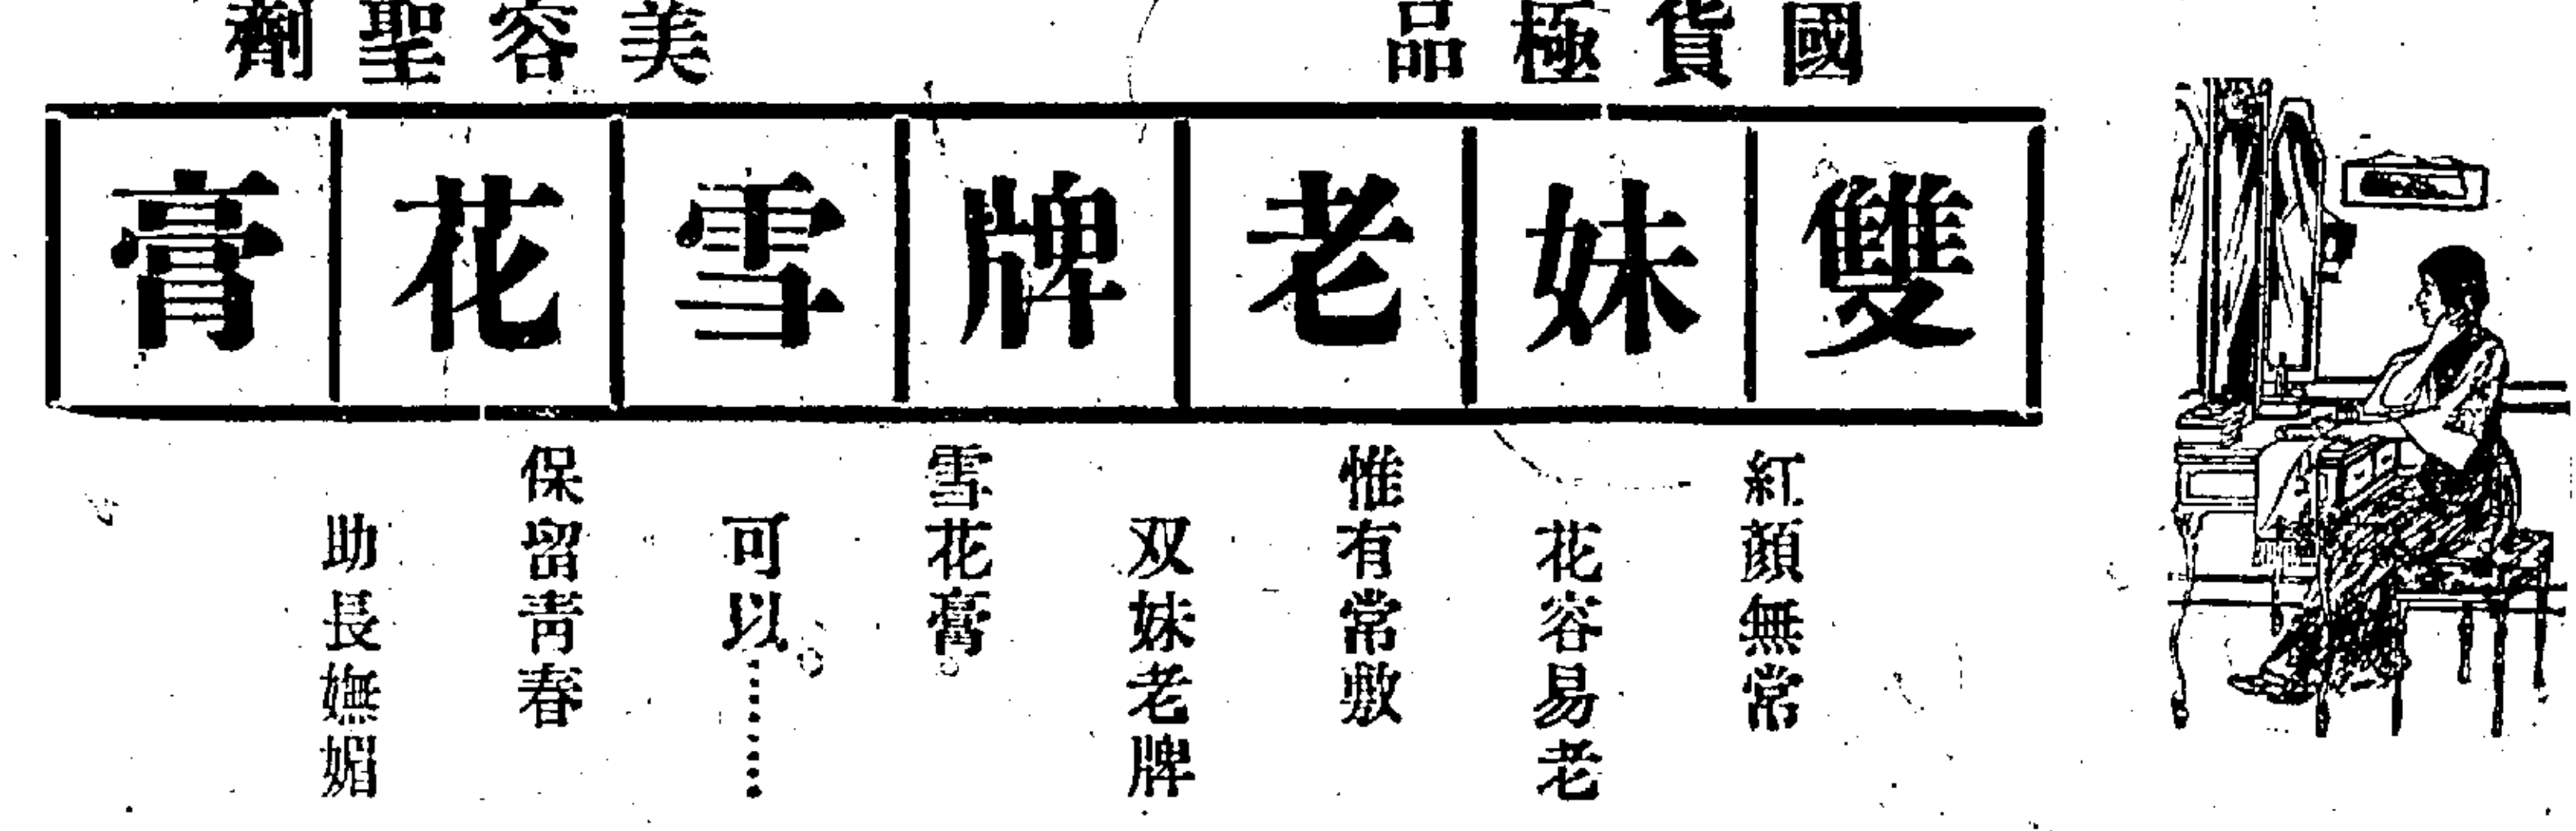 國貨極品
美容聖劑
雙妹老牌雪花膏
紅顏無常
花容易老
惟有常敷
双妹老牌
雪花膏
可以………
保留靑春
助長嫵媚